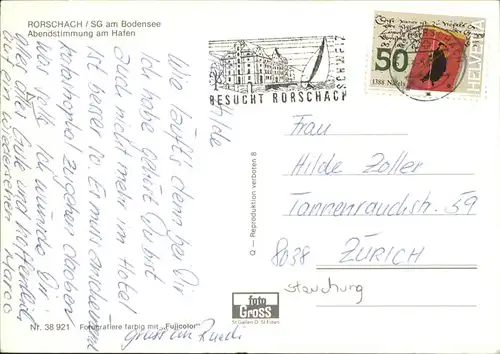 RORSCHACH / SG am Bodensee
Abendstimmung am Hafen
Hilde
Wie läuft's denn bei Dir
ich habe gehört Du bist
auch nicht mehr im Hotel
ist besser so. Es muss anscheinend
katastrophal zugehen droben
Ich wünsche Dir
alles Gute und hoffentlich
auf ein Wiedersehen
Marco
Gruss
Nr. 38 921 Fotografiere farbig mit „Fujicolor“
Q — Reproduktion verboten 8
foto
Gross
St. Gallen
BESUCHT RORSCHACH
SCHWEIZ
50
HELVETIA
1388
Frau
Hilde Zoller
Tannenrauchstr. 59
8038 ZÜRICH